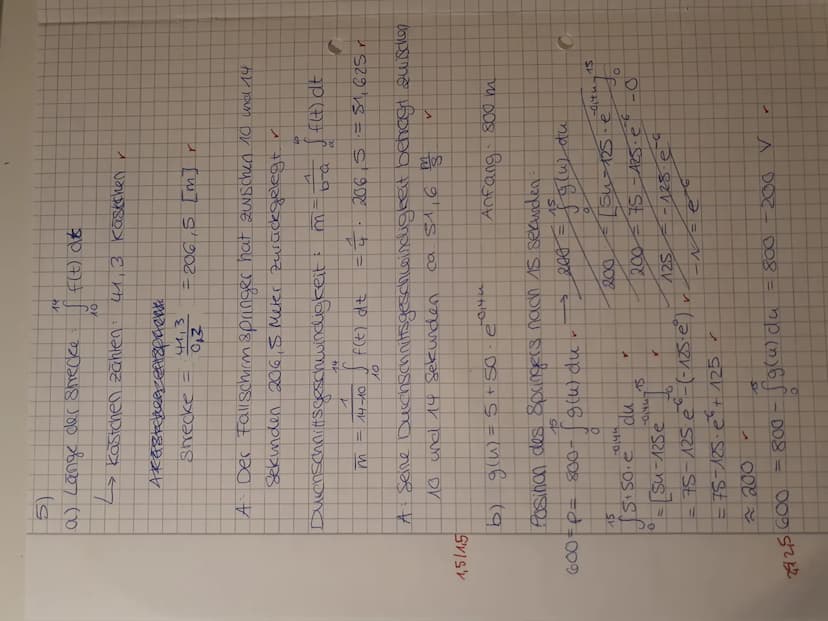 5)
a) Länge der Strecke: ∫₁₀¹⁴ f(t) dt
↳ Kästchen zählen: 41,3 Kästchen r
Strecke = 41,3/0,2 = 206,5 [m] r
A: Der Fallschirmspringer hat zwischen 10 und 14
Sekunden 206,5 Meter zurückgelegt. r
Durchschnittsgeschwindigkeit: m̅ = 1/(b-a) ∫ₐᵇ f(t) dt
m̅ = 1/(14-10) ∫₁₀¹⁴ f(t) dt = 1/4 · 206,5 = 51,625 r
A: Seine Durchschnittsgeschwindigkeit beträgt zwischen
10 und 14 Sekunden ca 51,6 m/s r
1,5/1,5
b) g(u) = 5 + 50 · e^-0,4u Anfang: 800 m
Position des Springers nach 15 Sekunden:
600 = P = 800 - ∫₀¹⁵ g(u) du r → 200 = ∫₀¹⁵ g(u) du
200 = [5u - 125 · e^-0,4u]₀¹⁵
200 = 75 - 125 · e^-6 - 0
125 = -125 · e^-6
-1 = e^-6
∫₀¹⁵ 5 + 50 · e^-0,4u du r
= [5u - 125e^-0,4u]₀¹⁵ r
= 75 - 125 e^-6 - (-125 e⁰) r
= 75 - 125 · e^-6 + 125 r
≈ 200 r
600 = 800 - ∫₀¹⁵ g(u) du = 800 - 200 V r